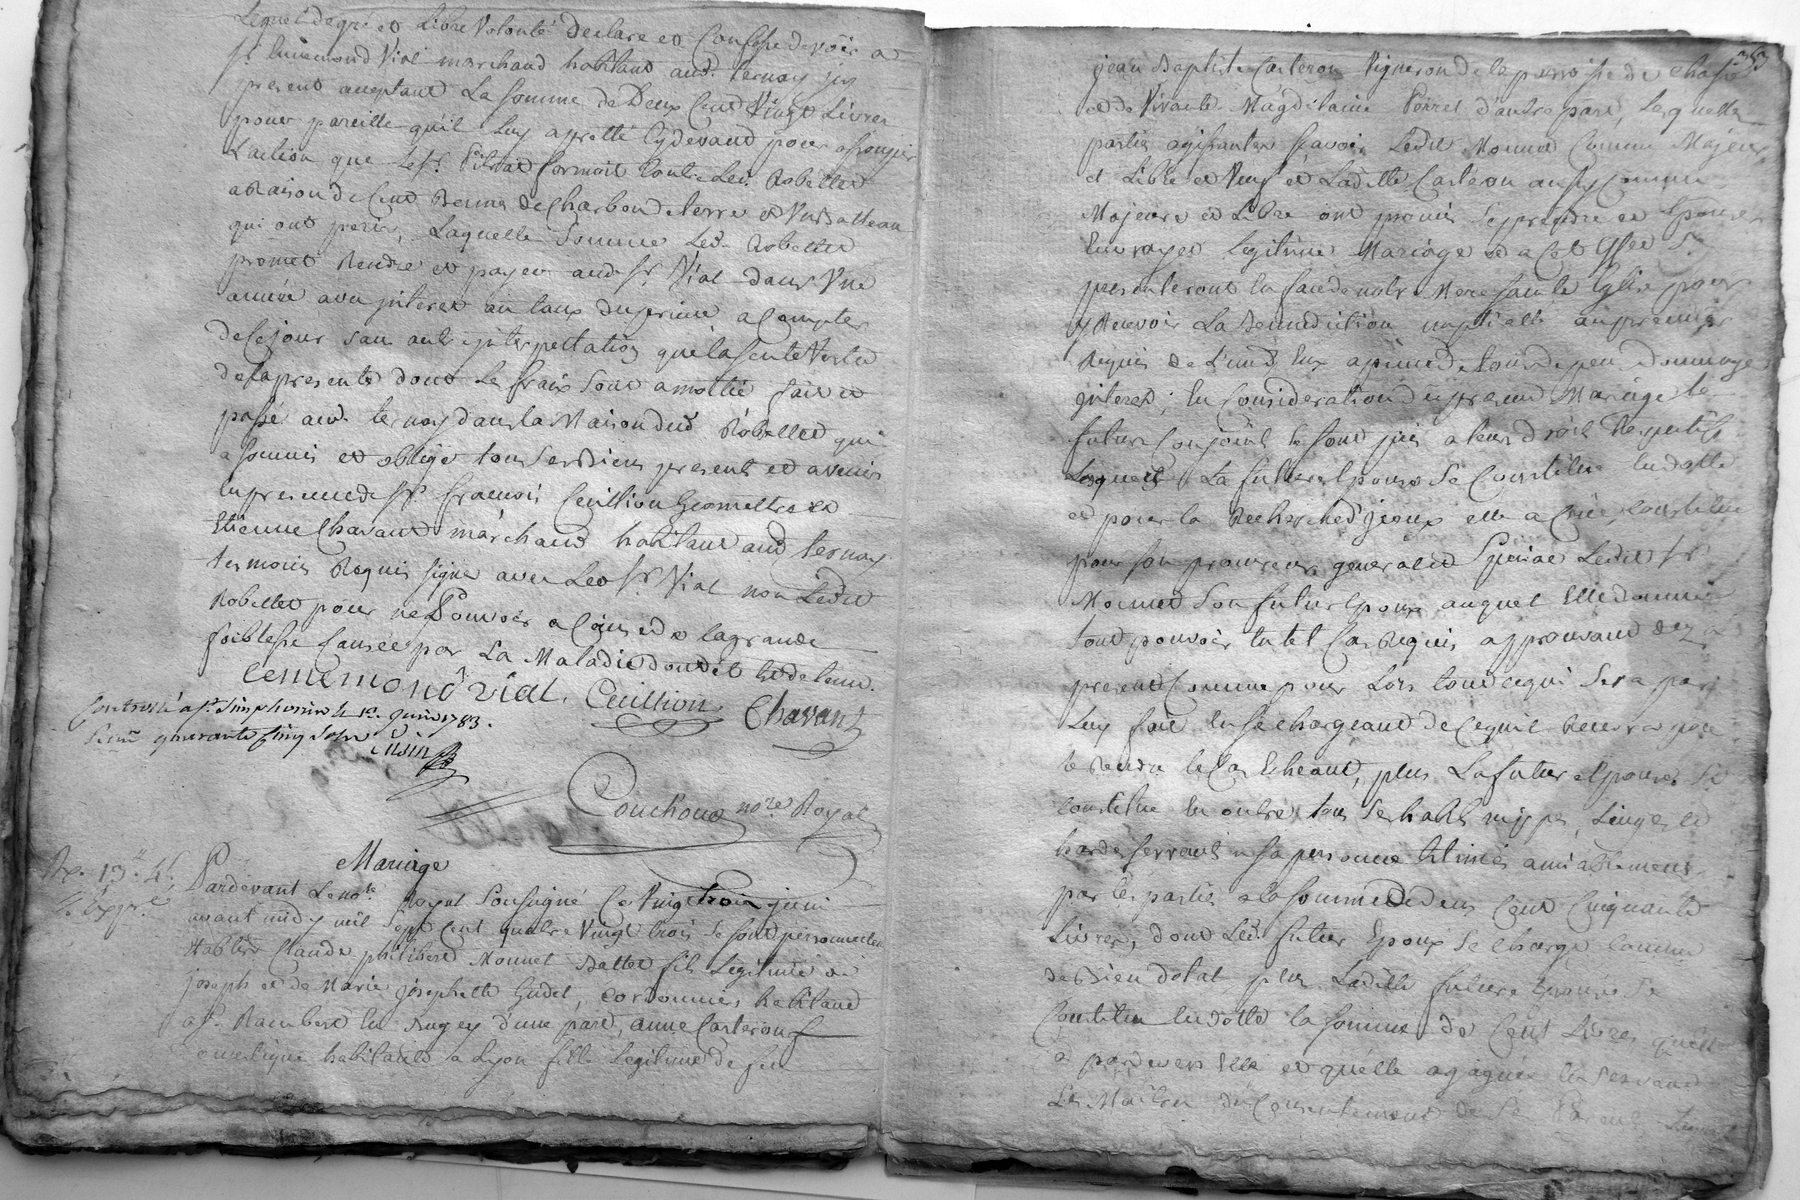 Lequel de gré et Libre Volonté declare et Confesse devoir a
Sr. Ennemond Vial marchand habitant aud. ternay icy
present acceptant La somme de Deux Cent Vingt Livres
pour pareille qu'il Luy a pretté Cydevand pour assoupir
L'action que Le Sr. formoit Contre Led. Robellet
a Raison de Cent Bennes de Charbon de terre et Un Batteau
qui ont perir, Laquelle Somme Led. Robellet
promet Rendre et payer aud. Sr. Vial dans Une
année avec jnterest au taux du prince a Compter
de Ce jour sans autre jnterpellation que la seule Vertu
de la presente dont Les fraix sont a moitié fait et
passé aud. ternay dans la Maison dud. Robellet qui
a soumis et obligé tous ses Biens presents et avenir
en presence de Sr. francois Cuillion Geomettre et
Etienne Chavant marchand habitant aud. ternay
temoins Requis signé avec Led. Sr. Vial non Ledit
Robellet pour ne Pouvoir a Cause de la grande
foiblesse Causée par La Maladie dont il Est detenu.
enemond vial. Cuillion Chavant
Controllé a St. Simphorien le juin 1783.
Reçu quarante Cinq Sols
Couchoud nore. Royal
Mariage
Pardevant Le nore. Royal Soussigné Ce Vingt trois juin
avant midy mil Sept Cent quatre Vingt trois se sont personnellemt.
Etablis Claude philibert Monnet Battet fils Legitime de
joseph et de Marie josephette Gudet, Cordonnier habitant
a St. Rambert En Bugey d'une part, anne Carteron
domestique habitante a Lyon fille Legitime de feu
353
jean Baptiste Carteron Vigneron de la parroisse de
et de Vivante Magdelaine Perret d'autre part, Lesquelles
parties agissantes scavoir Ledit Monnet Comme Majeur
et Libre et Veuf et Laditte Carteron aussy Comme
Majeure et Libre ont promis se prendre et Epouser
En vray et legitime Mariage et a Cet Effet Se
presenteront En face de notre Mere sainte Eglise pour
y Recevoir La Benediction nuptialle au premier
Requis de L'un d'Eux a peine de tous depens Dommage
jnterets; En Consideration du present Mariage les
futurs Conjoints se sont pris a leurs droits Respectifs
Lesquels La future Epouse Se Constitue En dotte
et pour la Recherche d'jceux elle a Créé Constitué
pour son procureur general et Special Ledit Sr.
Monnet Son futur Epoux auquel Elle donne
tout pouvoir En tel Cas Requis approuvant dez a
present Comme pour Lors tout ce qui Sera par
Luy fait En se Chargeant de Ce qu'il Recevra pour
le Rendre le Cas Echeant, plus La future Epouse Se
Constitue En outre tous Ses habits nippes, Linges et
hardes servants a sa personne Estimés amiablement
par les parties a la somme de deux Cent Cinquante
Livres, dont Led. futur Epoux Se Charge Comme
de Bien dotal plus Laditte future Epouse Se
Constitue En dotte la somme de Cent Livres qu'elle
a pardevers Elle et qu'elle a gagnée En servant
Les Maitres du Consentement de Ses Parents